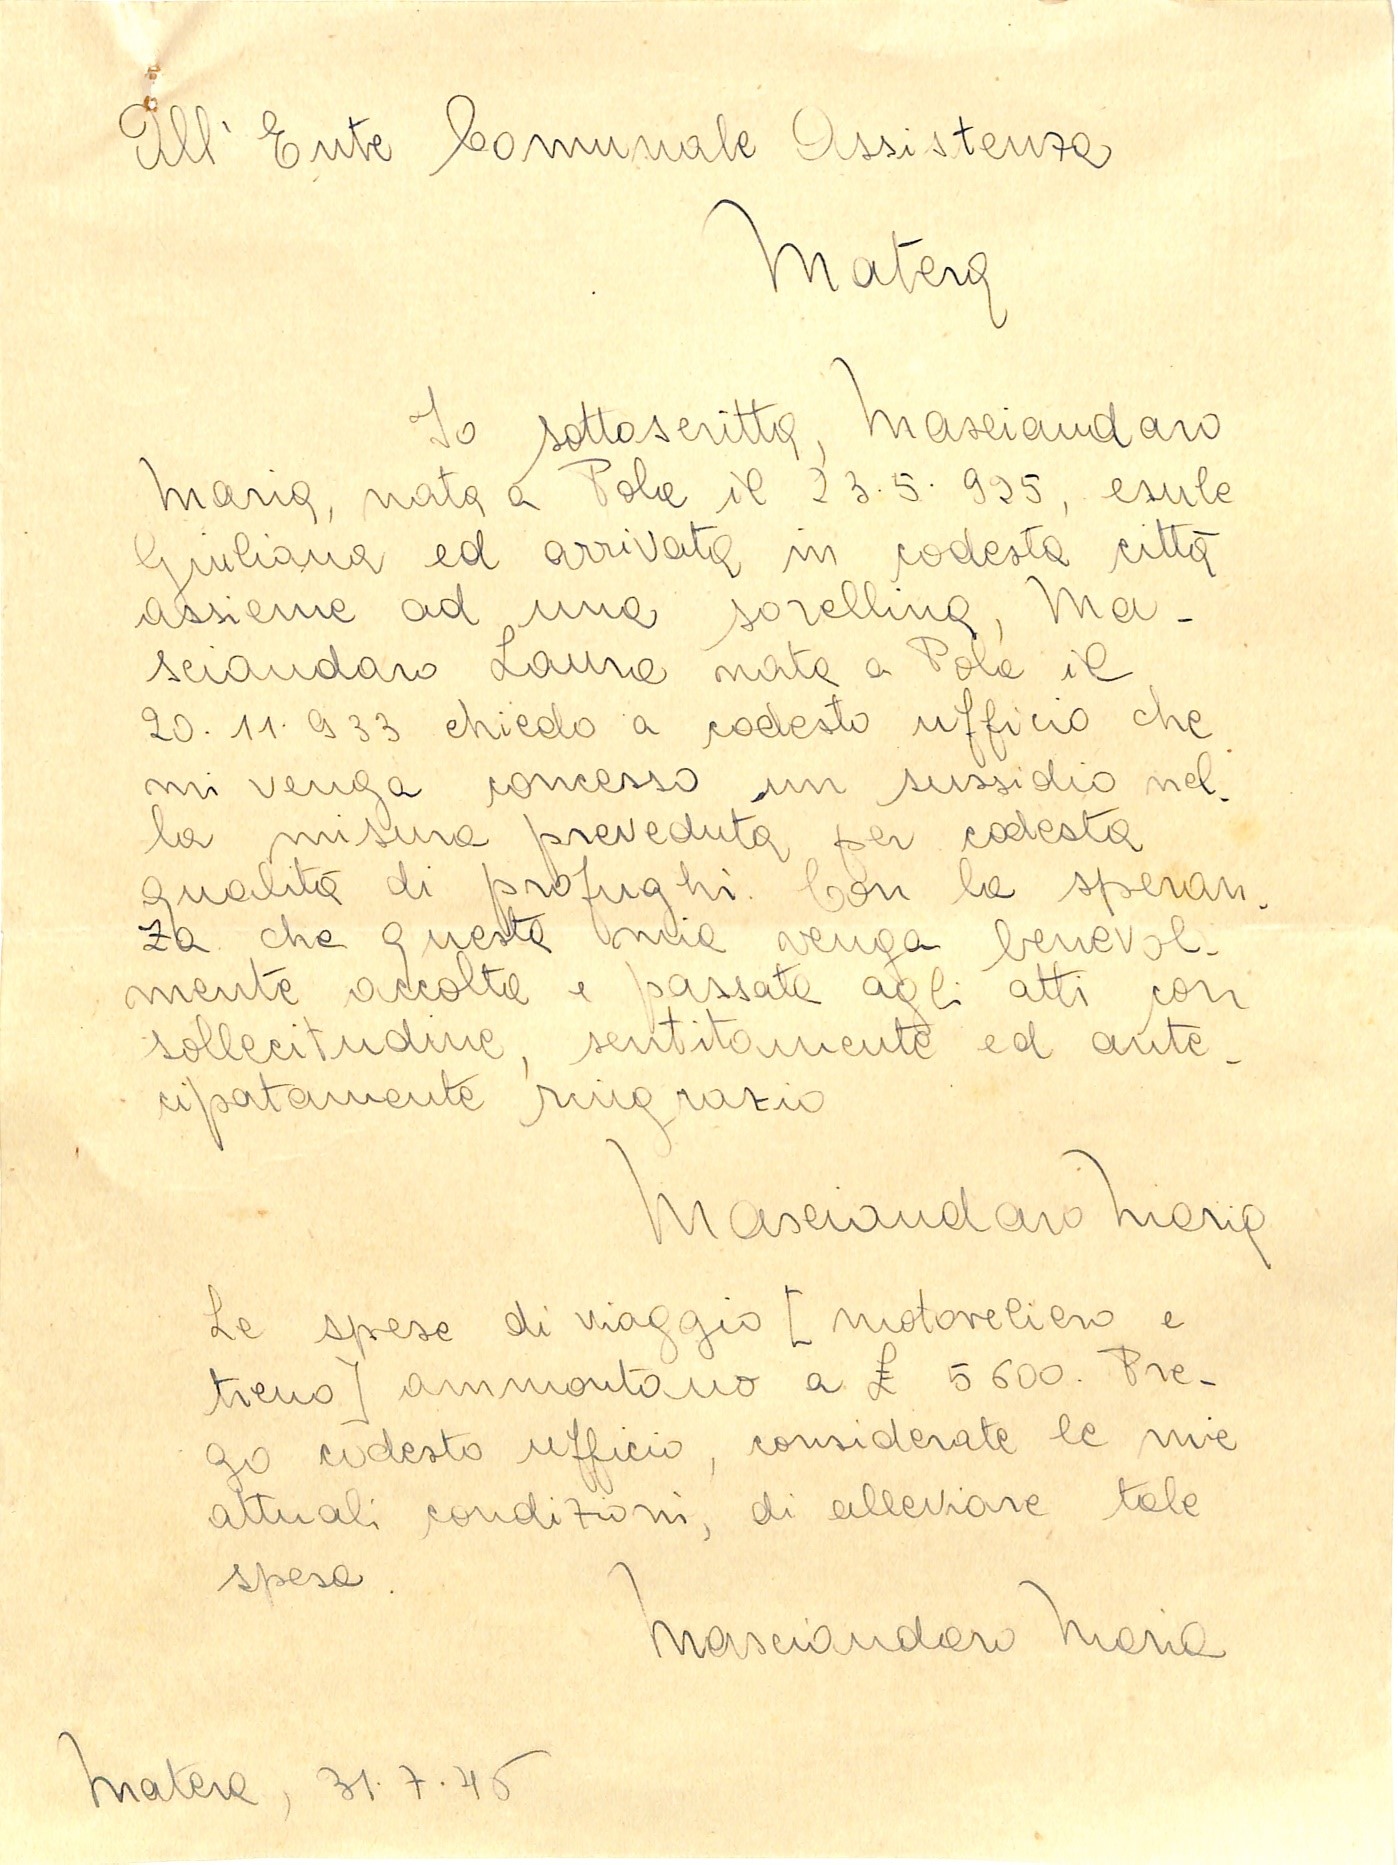 All' Ente Comunale Assistenza
Matera
Io sottoscritta, Masciandaro
Maria, nata a Pola il 23.5.925, esule
Giuliana ed arrivata in codesta città
assieme ad una sorellina, Ma-
sciandaro Laura nata a Pola il
20.11.933 chiedo a codesto ufficio che
mi venga concesso un sussidio nel-
la misura preveduta per codesta
qualità di profughi. Con la speran-
za che questa mia venga benevol-
mente accolta e passata agli atti con
sollecitudine, sentitamente ed ante-
cipatamente ringrazio
Masciandaro Maria
Le spese di viaggio [motoveliero e
treno] ammontano a £ 5600. Pre-
go codesto ufficio, considerate le mie
attuali condizioni, di alleviare tale
spesa.
Masciandaro Maria
Matera, 31.7.45